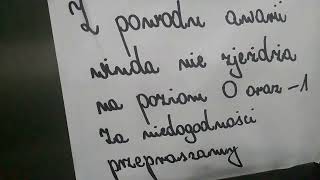 Z powodu awarii
winda nie zjeżdża
na poziom 0 oraz -1
Za niedogodności
przepraszamy